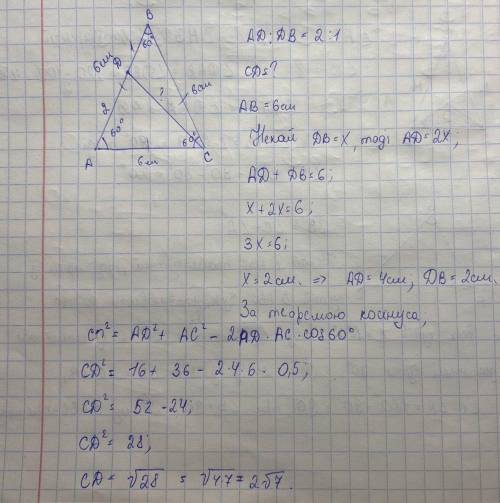 B
60°
1
6см
D
2
?
6см
60°
60°
A
6см
C
AD:DB = 2:1
CD=?
AB = 6см
Нехай DB=x, тоді AD=2x,
AD + DB = 6;
x+2x=6;
3x=6;
x=2см. => AD=4см, DB=2см.
За теоремою косинуса,
CD² = AD² + AC² - 2AD·AC·cos60°
CD² = 16+ 36 - 2·4·6·0,5;
CD² = 52 - 24;
CD² = 28;
CD = √28 = √4·7 = 2√7.